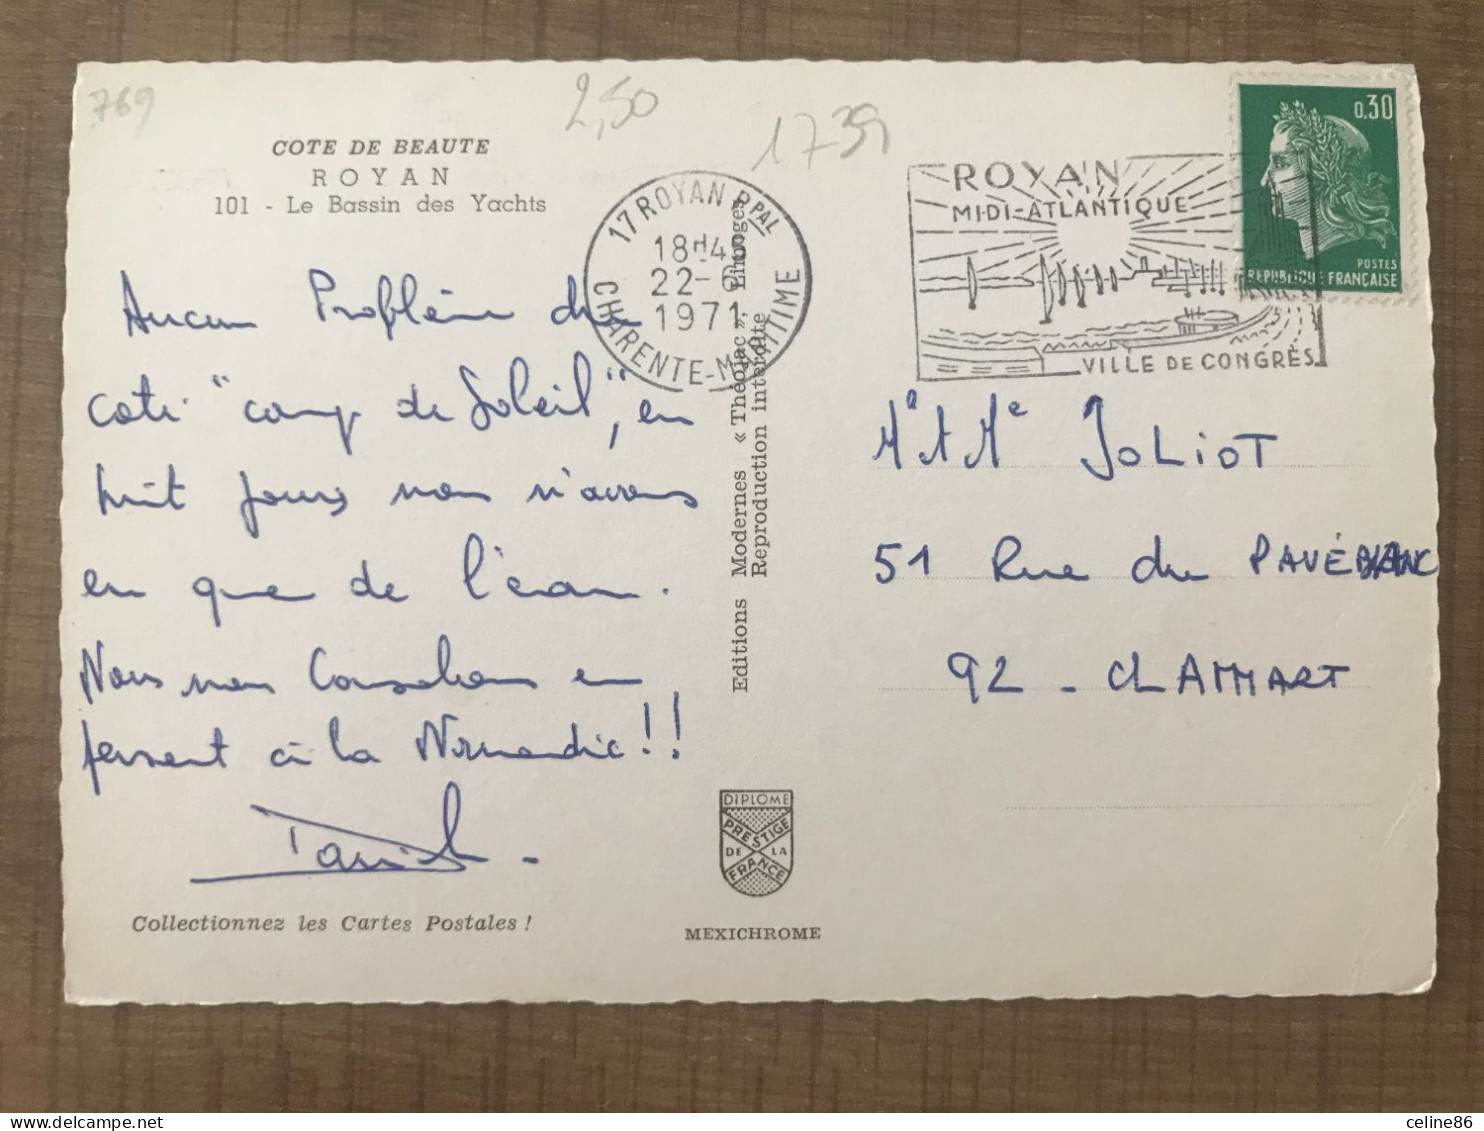 769
2,50
1739
COTE DE BEAUTE
ROYAN
101 - Le Bassin des Yachts
17 ROYAN Ppal
18H4
22-
1971
CHARENTE-MARITIME
ROYAN
MIDI-ATLANTIQUE
VILLE DE CONGRÈS
0,30
POSTES
REPUBLIQUE FRANÇAISE
Aucun Problème du
coté "coup de Soleil", en
huit jours nous n'avons
eu que de l'eau.
Nous nous consolons en
pensant à la Normandie!!
Editions Modernes « Théojac », Limoges
Reproduction interdite
Mr et Me JOLIOT
51 Rue du PAVÉ BLANC
92 - CLAMART
DIPLOME
PRESTIGE
DE LA
FRANCE
Collectionnez les Cartes Postales !
MEXICHROME
celine86